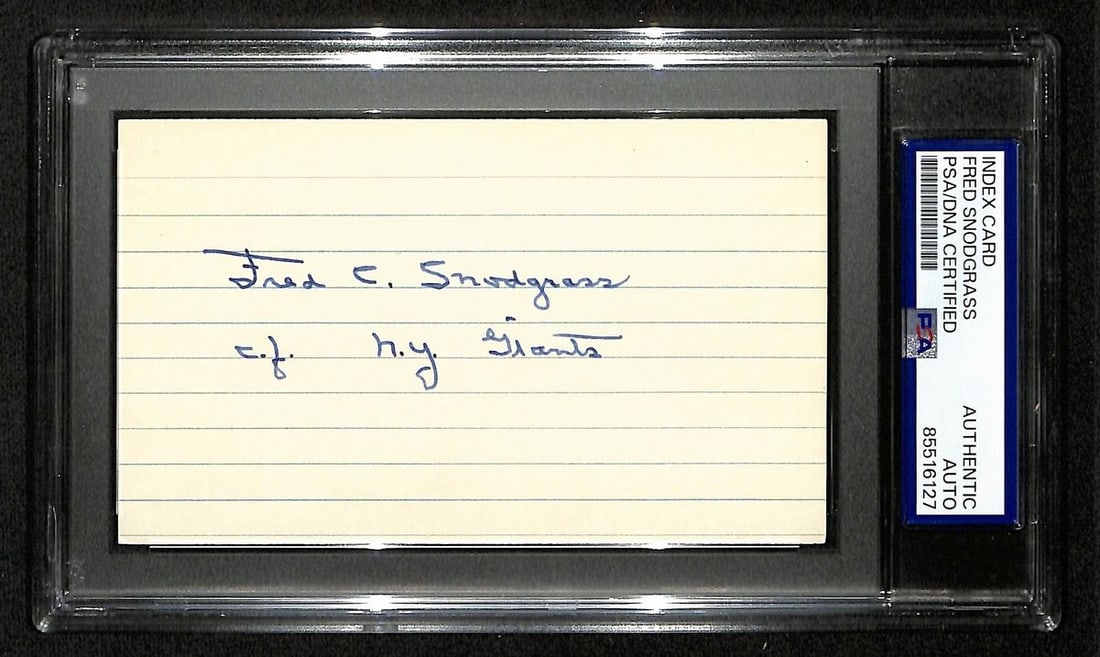 Fred C. Snodgrass
c.f. N.Y. Giants
INDEX CARD
FRED SNODGRASS
PSA/DNA CERTIFIED
PSA
AUTHENTIC
AUTO
85516127